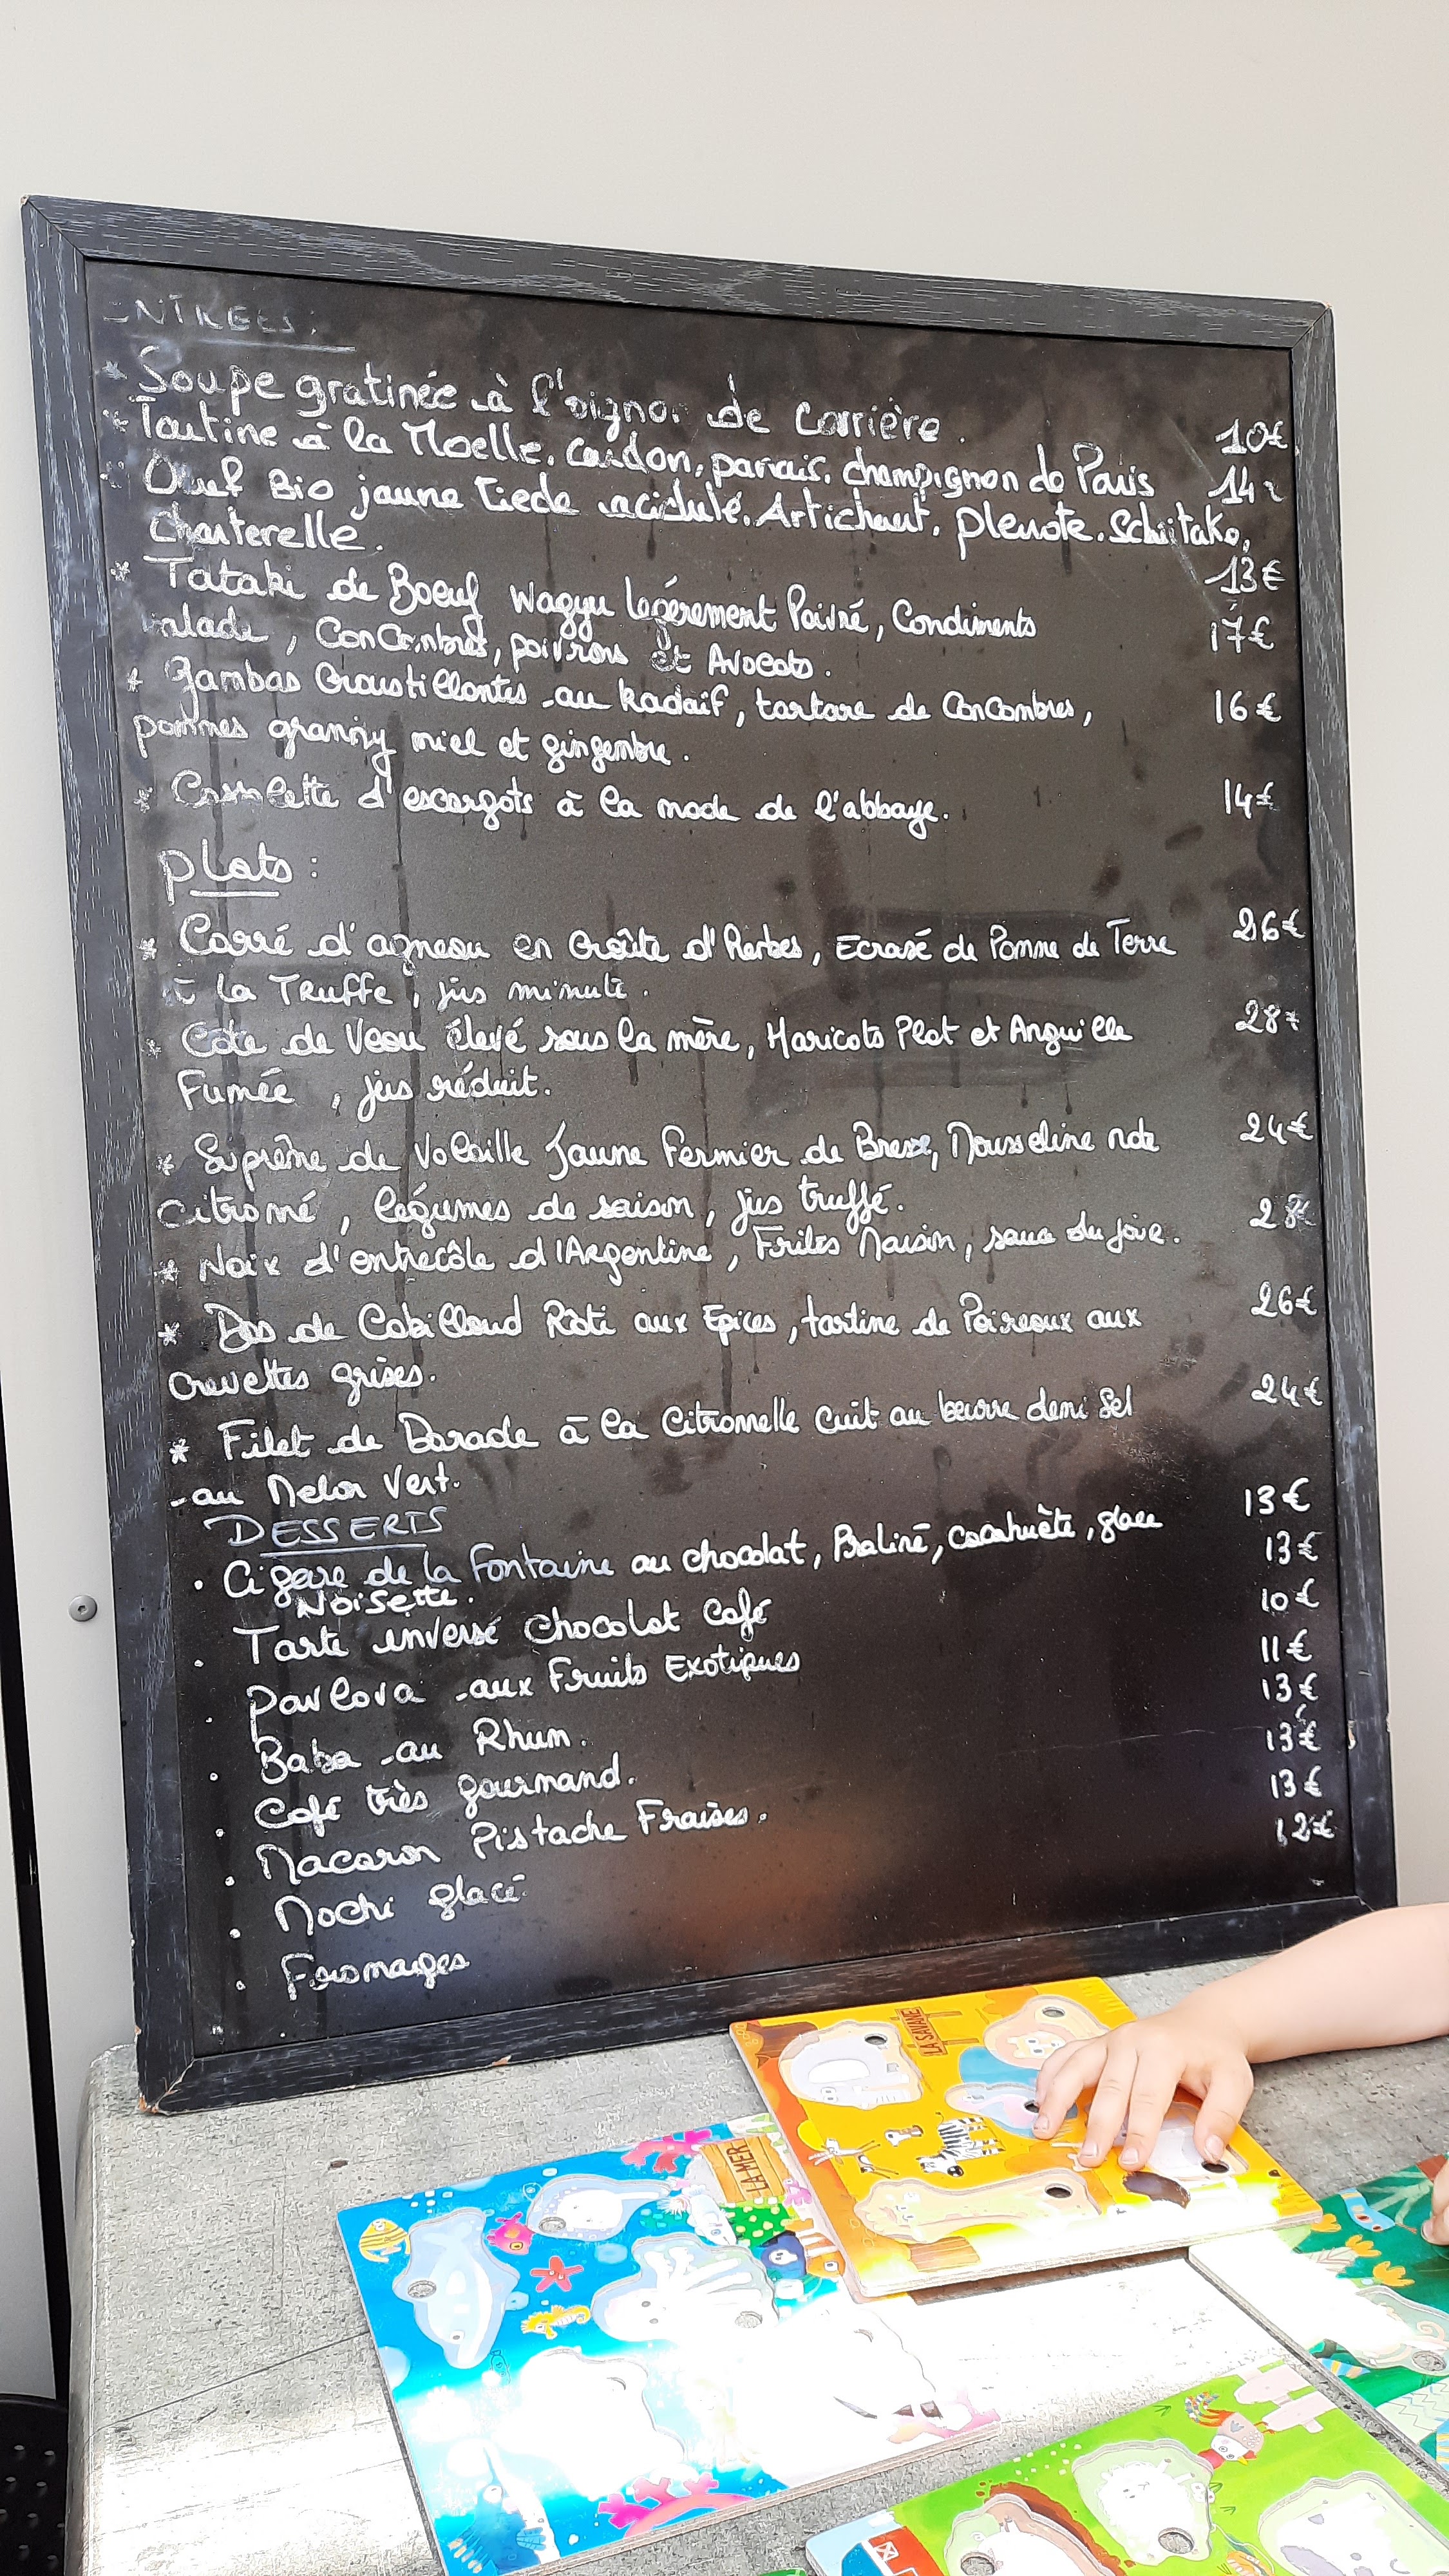 ENTREES:
* Soupe gratinée à l'oignon de Carrière. 10€
* Tartine à la Moelle, Cardon, panais, champignon de Paris 14€
* Oeuf Bio jaune tiede acidulé, Artichaut, pleurote, Schiitake,
Chanterelle. 13€
* Tataki de Boeuf Wagyu légérement Poivré, Condiments 17€
salade, Concombres, poivrons et Avocats.
* Gambas Croustillantes au kadaïf, tartare de Concombres, 16€
pommes granny miel et gingembre.
* Cassolette d'escargots à la mode de l'abbaye. 14€
Plats:
* Carré d'agneau en Croûte d'Herbes, Ecrasé de Pomme de Terre 26€
à la Truffe, jus minute.
* Côte de Veau élevé sous la mère, Haricots Plat et Anguille 28€
Fumée, jus réduit.
* Suprême de Volaille Jaune Fermier de Bresse, Mousseline 24€
Citronné, légumes de saison, jus truffé.
* Noix d'entrecôte d'Argentine, Frites Maison, sauce du jour. 28€
* Dos de Cabillaud Rôti aux Epices, tartine de Poireaux aux 26€
Crevettes grises.
* Filet de Dorade à la Citronnelle Cuit au beurre demi Sel 24€
au Melon Vert.
DESSERTS
. Cigare de la Fontaine au chocolat, Praliné, Cacahuète, glace 13€
Noisette.
. Tarte inversé Chocolat Café 13€
. Pavlova aux Fruits Exotiques 10€
. Baba au Rhum. 11€
. Café très gourmand. 13€
. Macaron Pistache Fraises. 13€
. Mochi glacé 13€
. Fromages 12€
LA SAVANE
LA MER